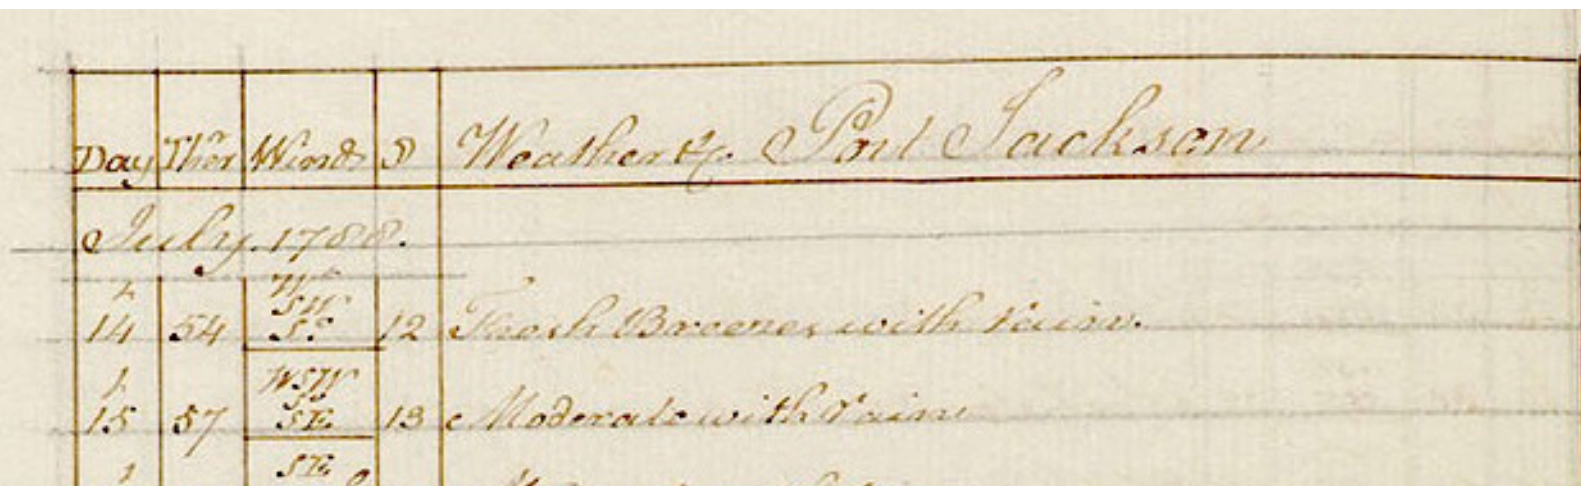 Day Ther Winds Weather &c. Port Jackson
July. 1788.
SW
14 54 So. 12 Fresh Breezes with rain.
WSW
So
15 57 SE. 13 Moderate with rain
SE